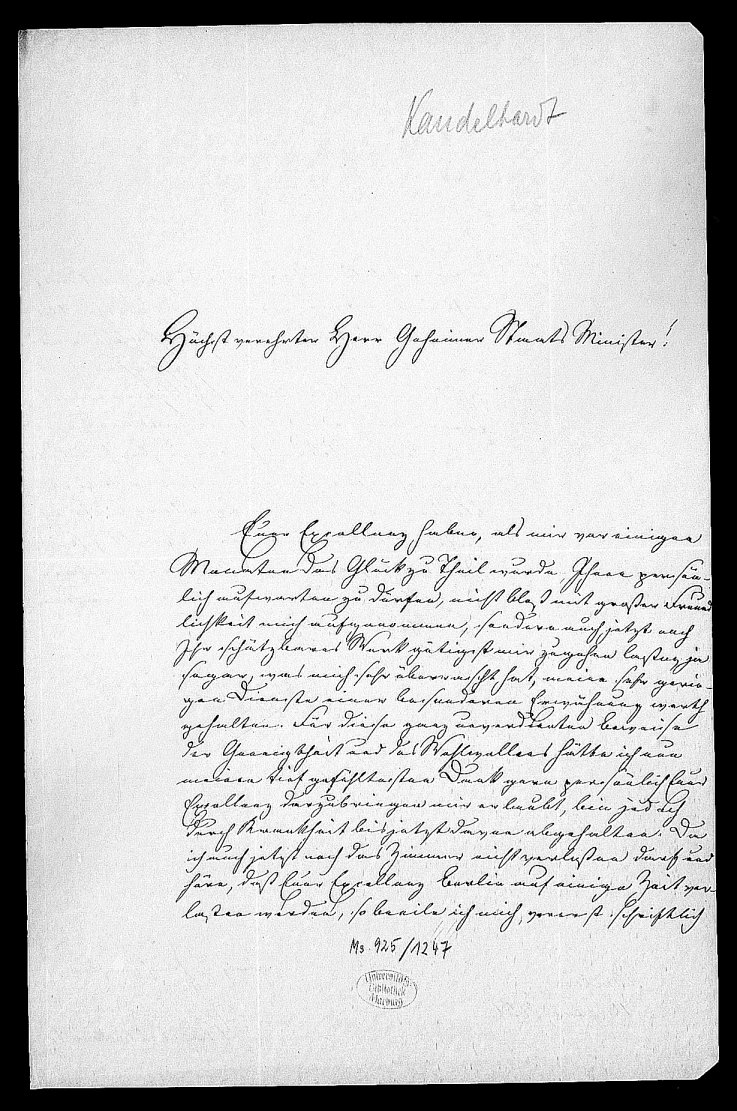 Kandelhardt
Höchst verehrter Herr Geheimer Staats Minister!
Euer Excellenz haben, als mir vor einigen
Monaten das Glück zu Theil wurde Ihnen persön-
lich aufwarten zu dürfen, nicht bloß mit großer Freund
lichkeit mich aufgenommen, sondern auch jetzt noch
Ihr schätzbares Werk gütigst mir zugehen lassen, ja
sogar, was mich sehr überrascht hat, meine sehr gerin-
gen Dienste einer besonderen Erwähnung werth
gehalten. Für diese ganz unverdienten Beweise
der Geneigtheit und des Wohlwollens hätte ich nun
meinen tief gefühltesten Dank gern persönlich Euer
Excellenz darzubringen mir erlaubt, bin jedoch
durch Krankheit bis jetzt davon abgehalten. Da
ich auch jetzt noch das Zimmer nicht verlassen darf und
höre, daß Euer Excellenz Berlin auf einige Zeit ver-
lassen werden, so beeile ich mich, vorerst schriftlich
Ms 925/1247
Universitäts-
Bibliothek
Marburg